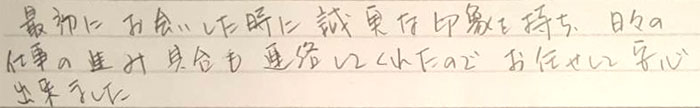 最初にお会いした時に誠実な印象を持ち、日々の
仕事の進み具合も連絡してくれたので お任せして安心
出来ました